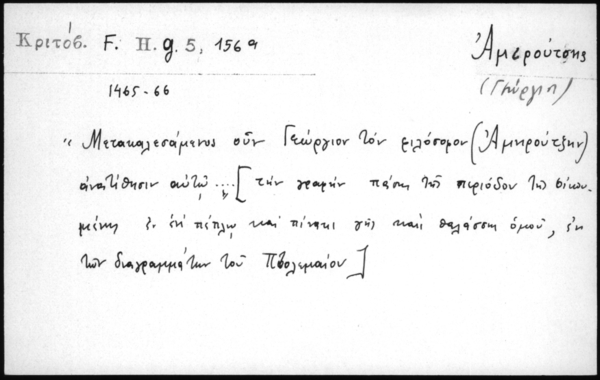 Κριτόβ. F. H. g. 5, 156a
Ἀμιρούτσης
(Γεώργιος)
1465-66
" Μετακαλεσάμενος οὖν Γεώργιον τὸν φιλόσοφον (Ἀμηρούτζην)
ἀνατίθησιν αὐτῷ .... [ τὴν γραφὴν πάσης τῆς περιόδου τῆς οἰκου-
μένης ἐν ἑνὶ πέπλῳ καὶ πίνακι γῆς καὶ θαλάσσης ὁμοῦ, ἐκ
τῶν διαγραμμάτων τοῦ Πτολεμαίου ]